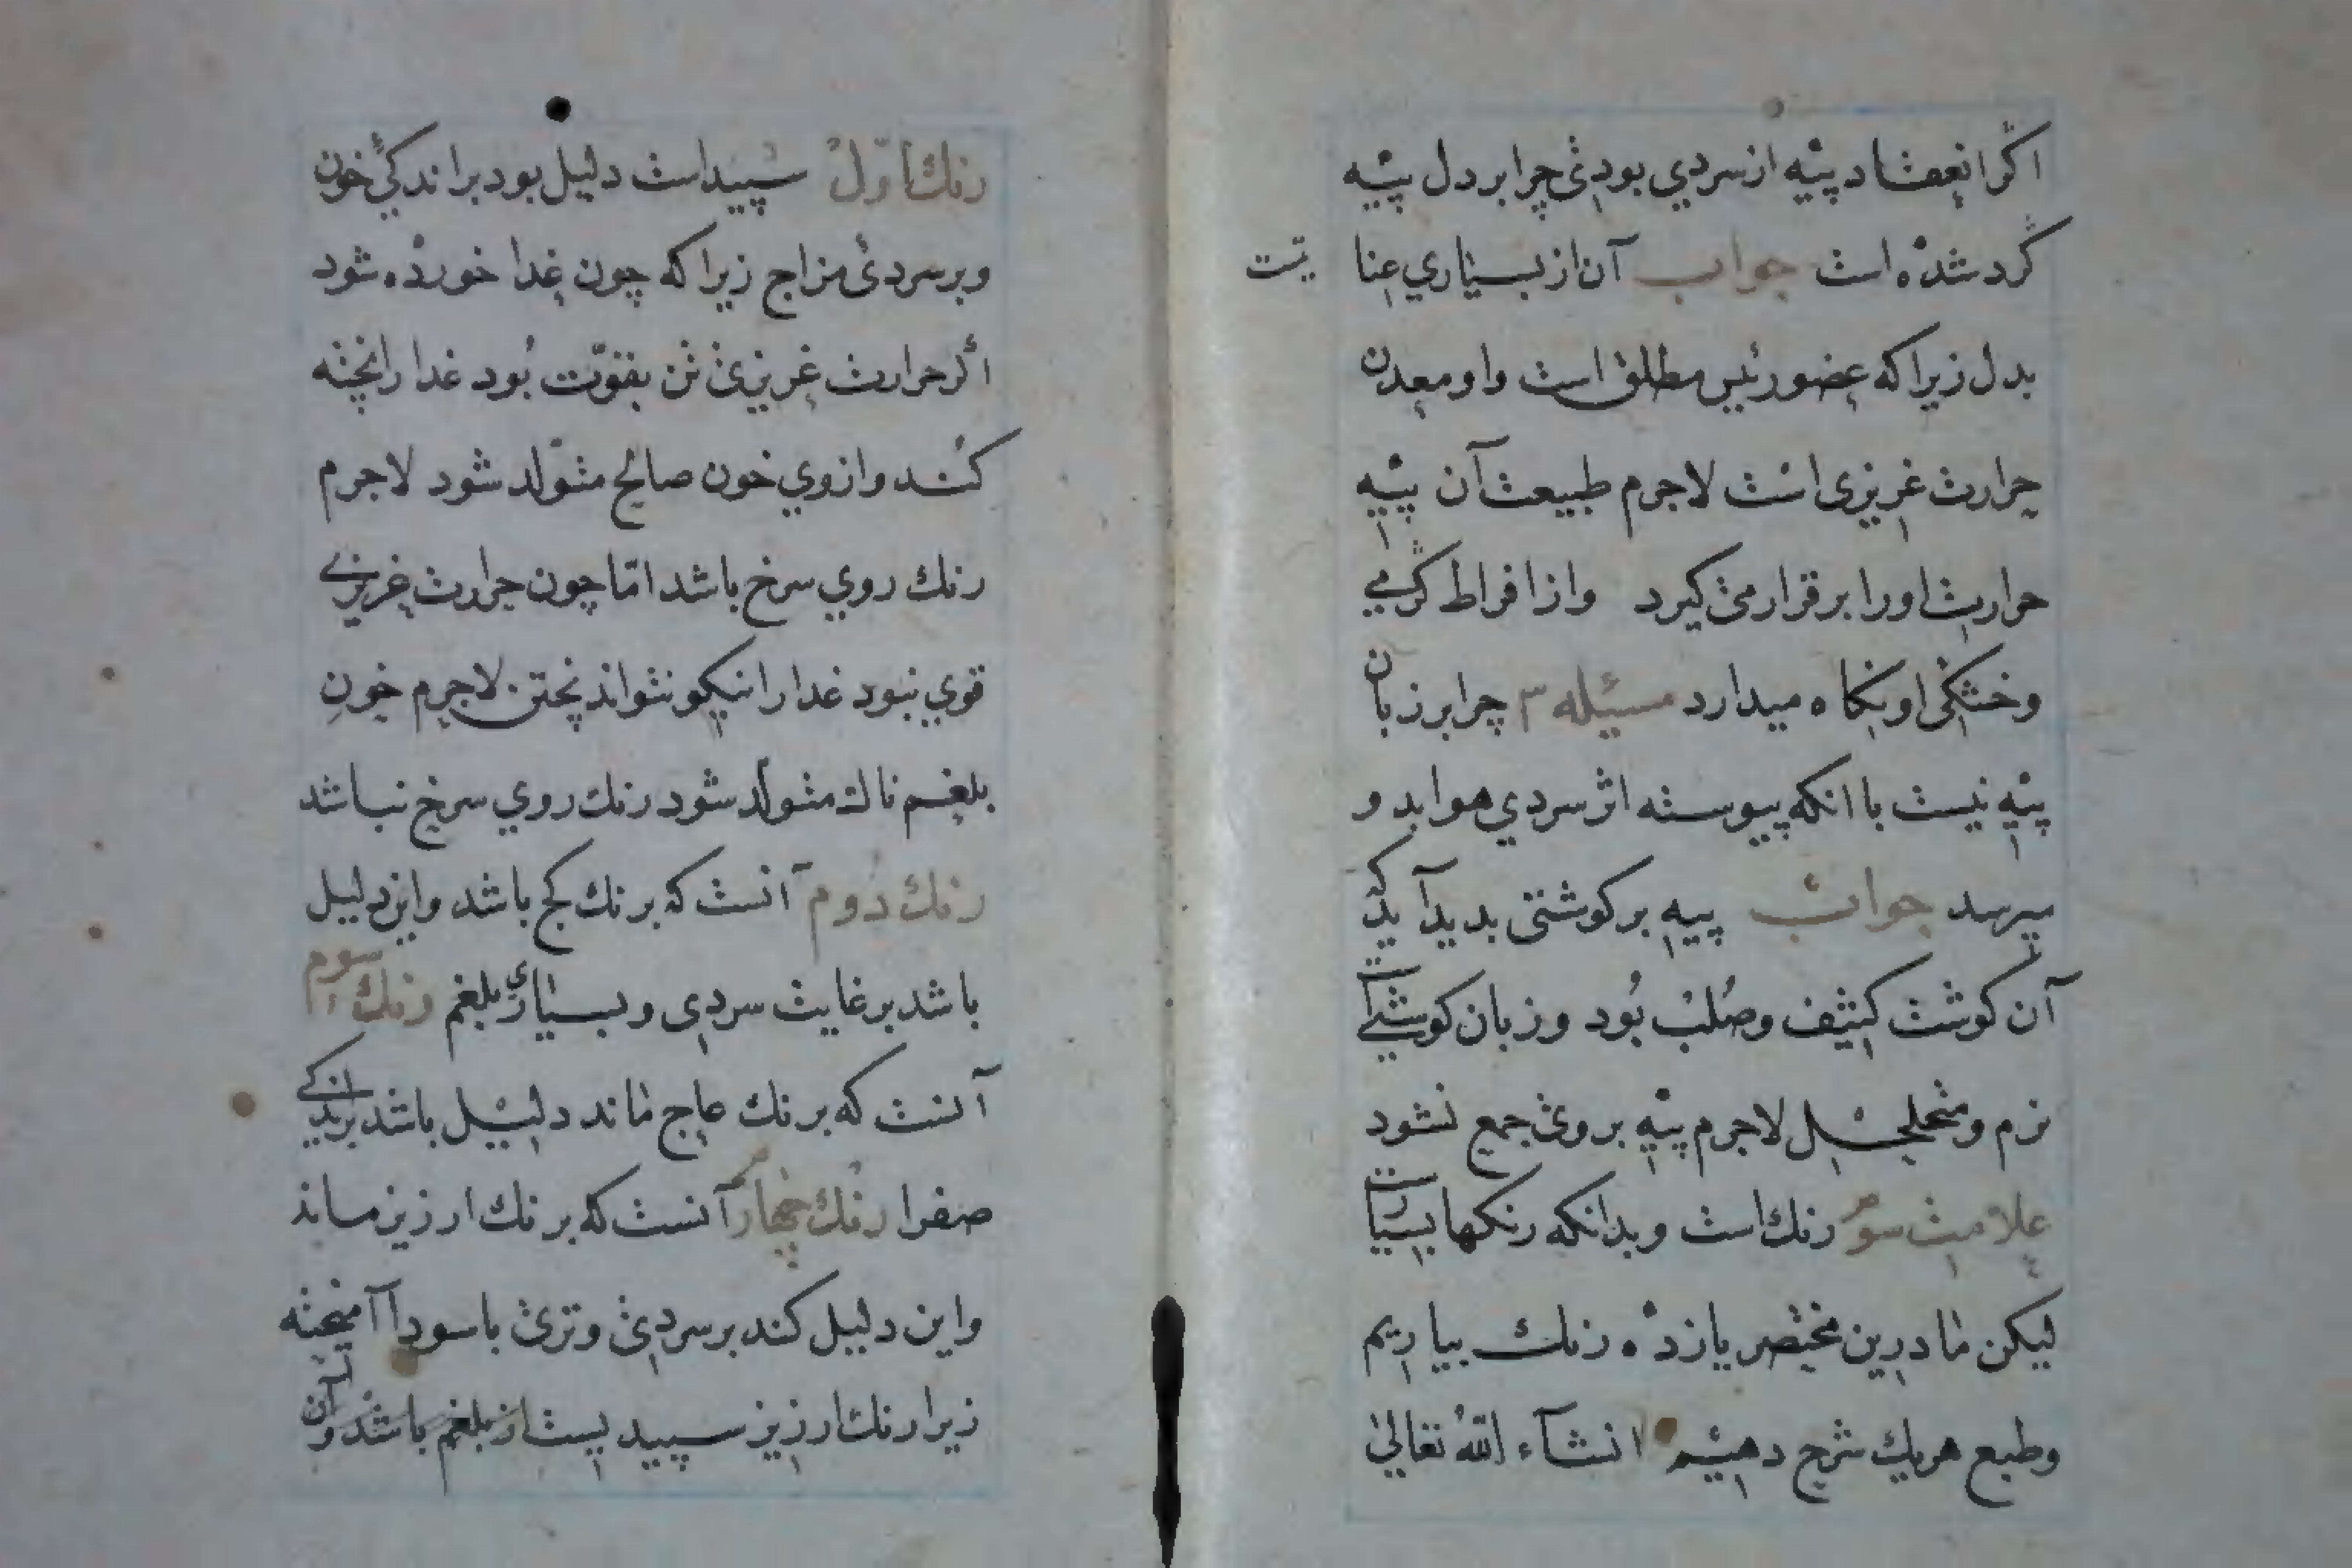 اگر انعقاد پیه از سردی بودی چرا بر دل پیه
گرد شده است جواب آن از بسیاری عنا یت
بدل زیرا که عضو رئیس مطلق است و او معدن
حرارت غریزی است لاجرم طبیعت آن پیه
حرارت او را برقرار می کیرد و از افراط گرمی
و خشکی او نکاه میدارد مسئله ۳ چرا بر زبان
پیه نیست با انکه پیوسته اثر سردی هوا بد و
میرسد جواب پیه بر کوشتی بدید آید که
آن کوشت کثیف و صُلب بُود و زبان کوشتی است
نرم و متخلخل لاجرم پیه بر وی جمع نشود
علامت سوم رنك است و بدانکه رنکها بسیار است
لیکن ما درین مختصر یازده رنك بیاریم
و طبع هریك شرح دهیم انشآء الله تعالی
رنك اول سپید است دلیل بود بر اندکی خون
و بر سردی مزاج زیرا که چون غدا خورده شود
اگر حرارت غریزی تن بقوّت بُود غدا را پخته
کند و از وی خون صالح متولد شود لاجرم
رنك روی سرخ باشد امّا چون حرارت غریزی
قوی نبود غدا را نیکو نتواند پختن لاجرم خون
بلغم ناك متولد شود رنك روی سرخ نباشد
رنك دوم آنست که بر نك کج باشد و این دلیل
باشد بر غایت سردی و بسیاری بلغم رنك سوم
آنست که بر نك عاج ماند دلیل باشد بر اندکی
صفرا رنك چهارم آنست که بر نك ارزیز ماند
و این دلیل کند بر سردی و تری با سودا آمیخته
زیرا رنك ارزیز سپید یست از بلغم باشد و آن